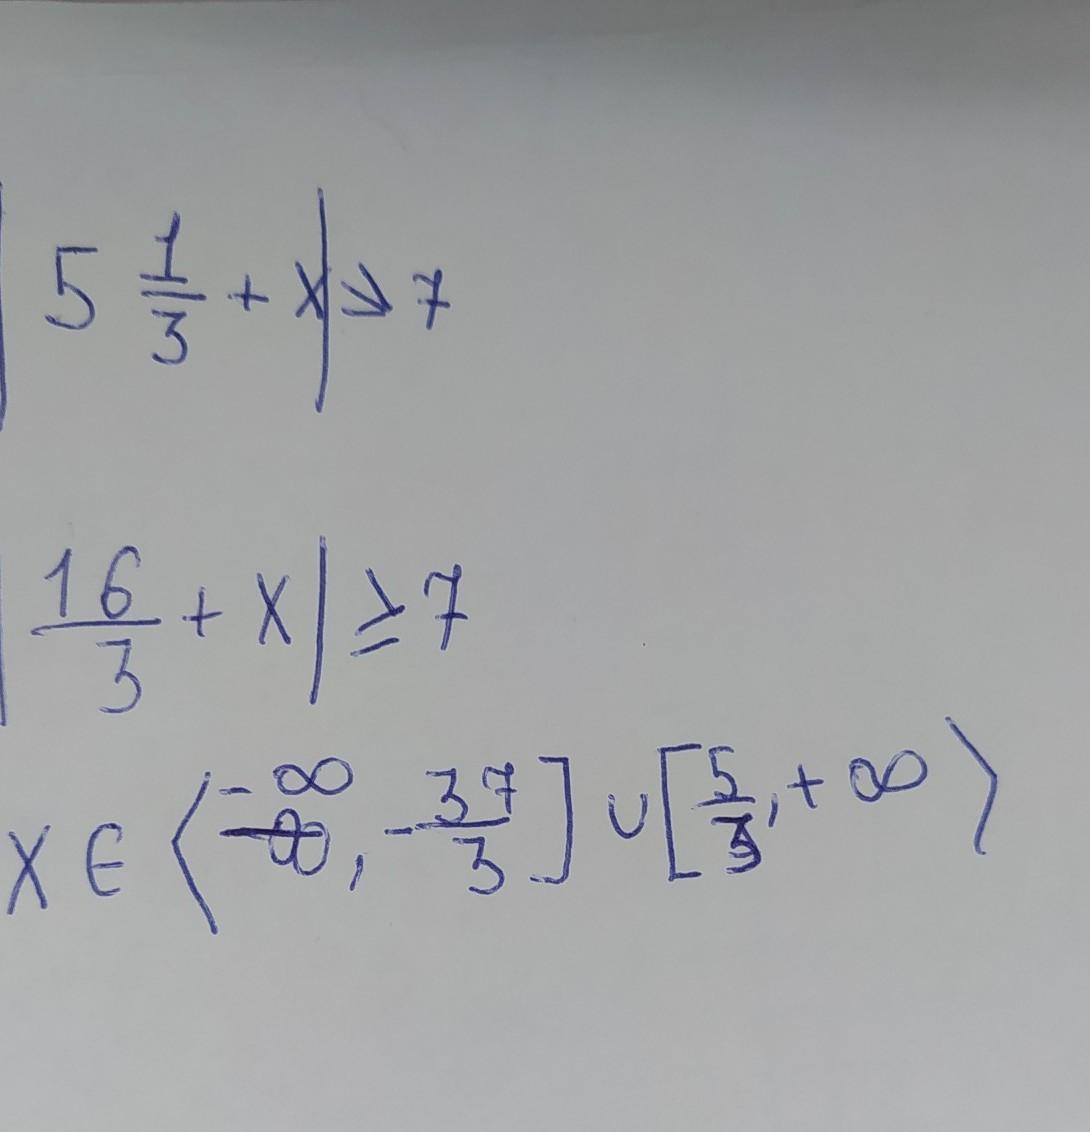 | 5 1/3 + x | ≥ 7
| 16/3 + x | ≥ 7
x ∈ ⟨-∞, -37/3] ∪ [5/3, +∞⟩